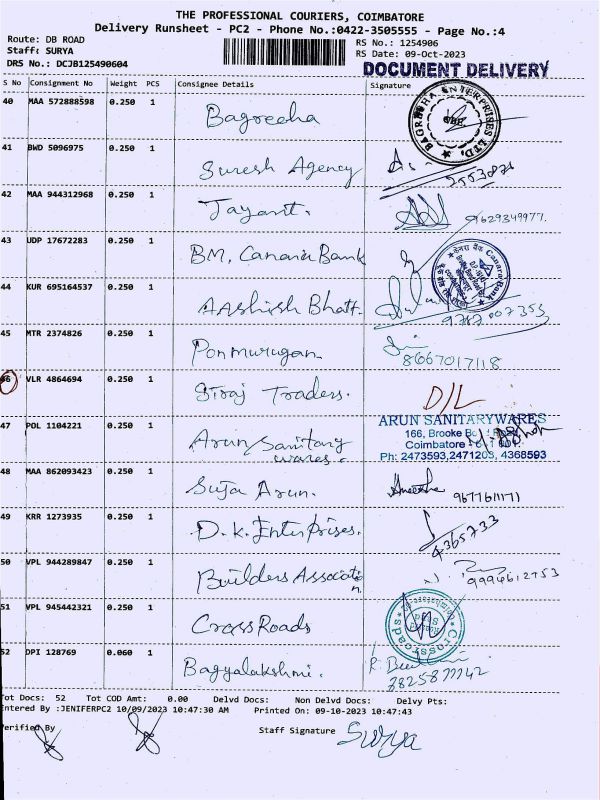 THE PROFESSIONAL COURIERS, COIMBATORE
Delivery Runsheet - PC2 - Phone No.:0422-3505555 - Page No.:4
Route: DB ROAD
RS No.: 1254906
Staff: SURYA
RS Date: 09-Oct-2023
DRS No.: DCJB125490604
DOCUMENT DELIVERY
S No Consignment No Weight PCS Consignee Details Signature
40 MAA 572888598 0.250 1 Bagreeha
BAGREEHA ENTERPRISES LTD.
41 BWD 5096975 0.250 1 Suresh Agency
42 MAA 944312968 0.250 1 Jayant. 9629349977.
43 UDP 17672283 0.250 1 BM, Canara Bank
Canara Bank
44 KUR 695164537 0.250 1 AAshish Bhatt. 9787007353
45 MTR 2374826 0.250 1 Ponmurugan 8667017118
46 VLR 4864694 0.250 1 Siraj Traders. D/L
47 POL 1104221 0.250 1 Arun Sanitary
wares.
ARUN SANITARYWARES
166, Brooke
Coimbatore
Ph: 2473593,2471203, 4368593
48 MAA 862093423 0.250 1 Suja Arun. 9677611171
49 KRR 1273935 0.250 1 D.K. Enterprises. 4365733
50 VPL 944289847 0.250 1 Builders Association 9994612753
51 VPL 945442321 0.250 1 CrossRoads
Crossroads
52 DPI 128769 0.060 1 Bagyalakshmi.
Tot Docs: 52 Tot COD Amt: 0.00 Delvd Docs: Non Delvd Docs: Delvy Pts:
Entered By :JENIFERPC2 10/09/2023 10:47:30 AM Printed On: 09-10-2023 10:47:43
Verified By Staff Signature Surya